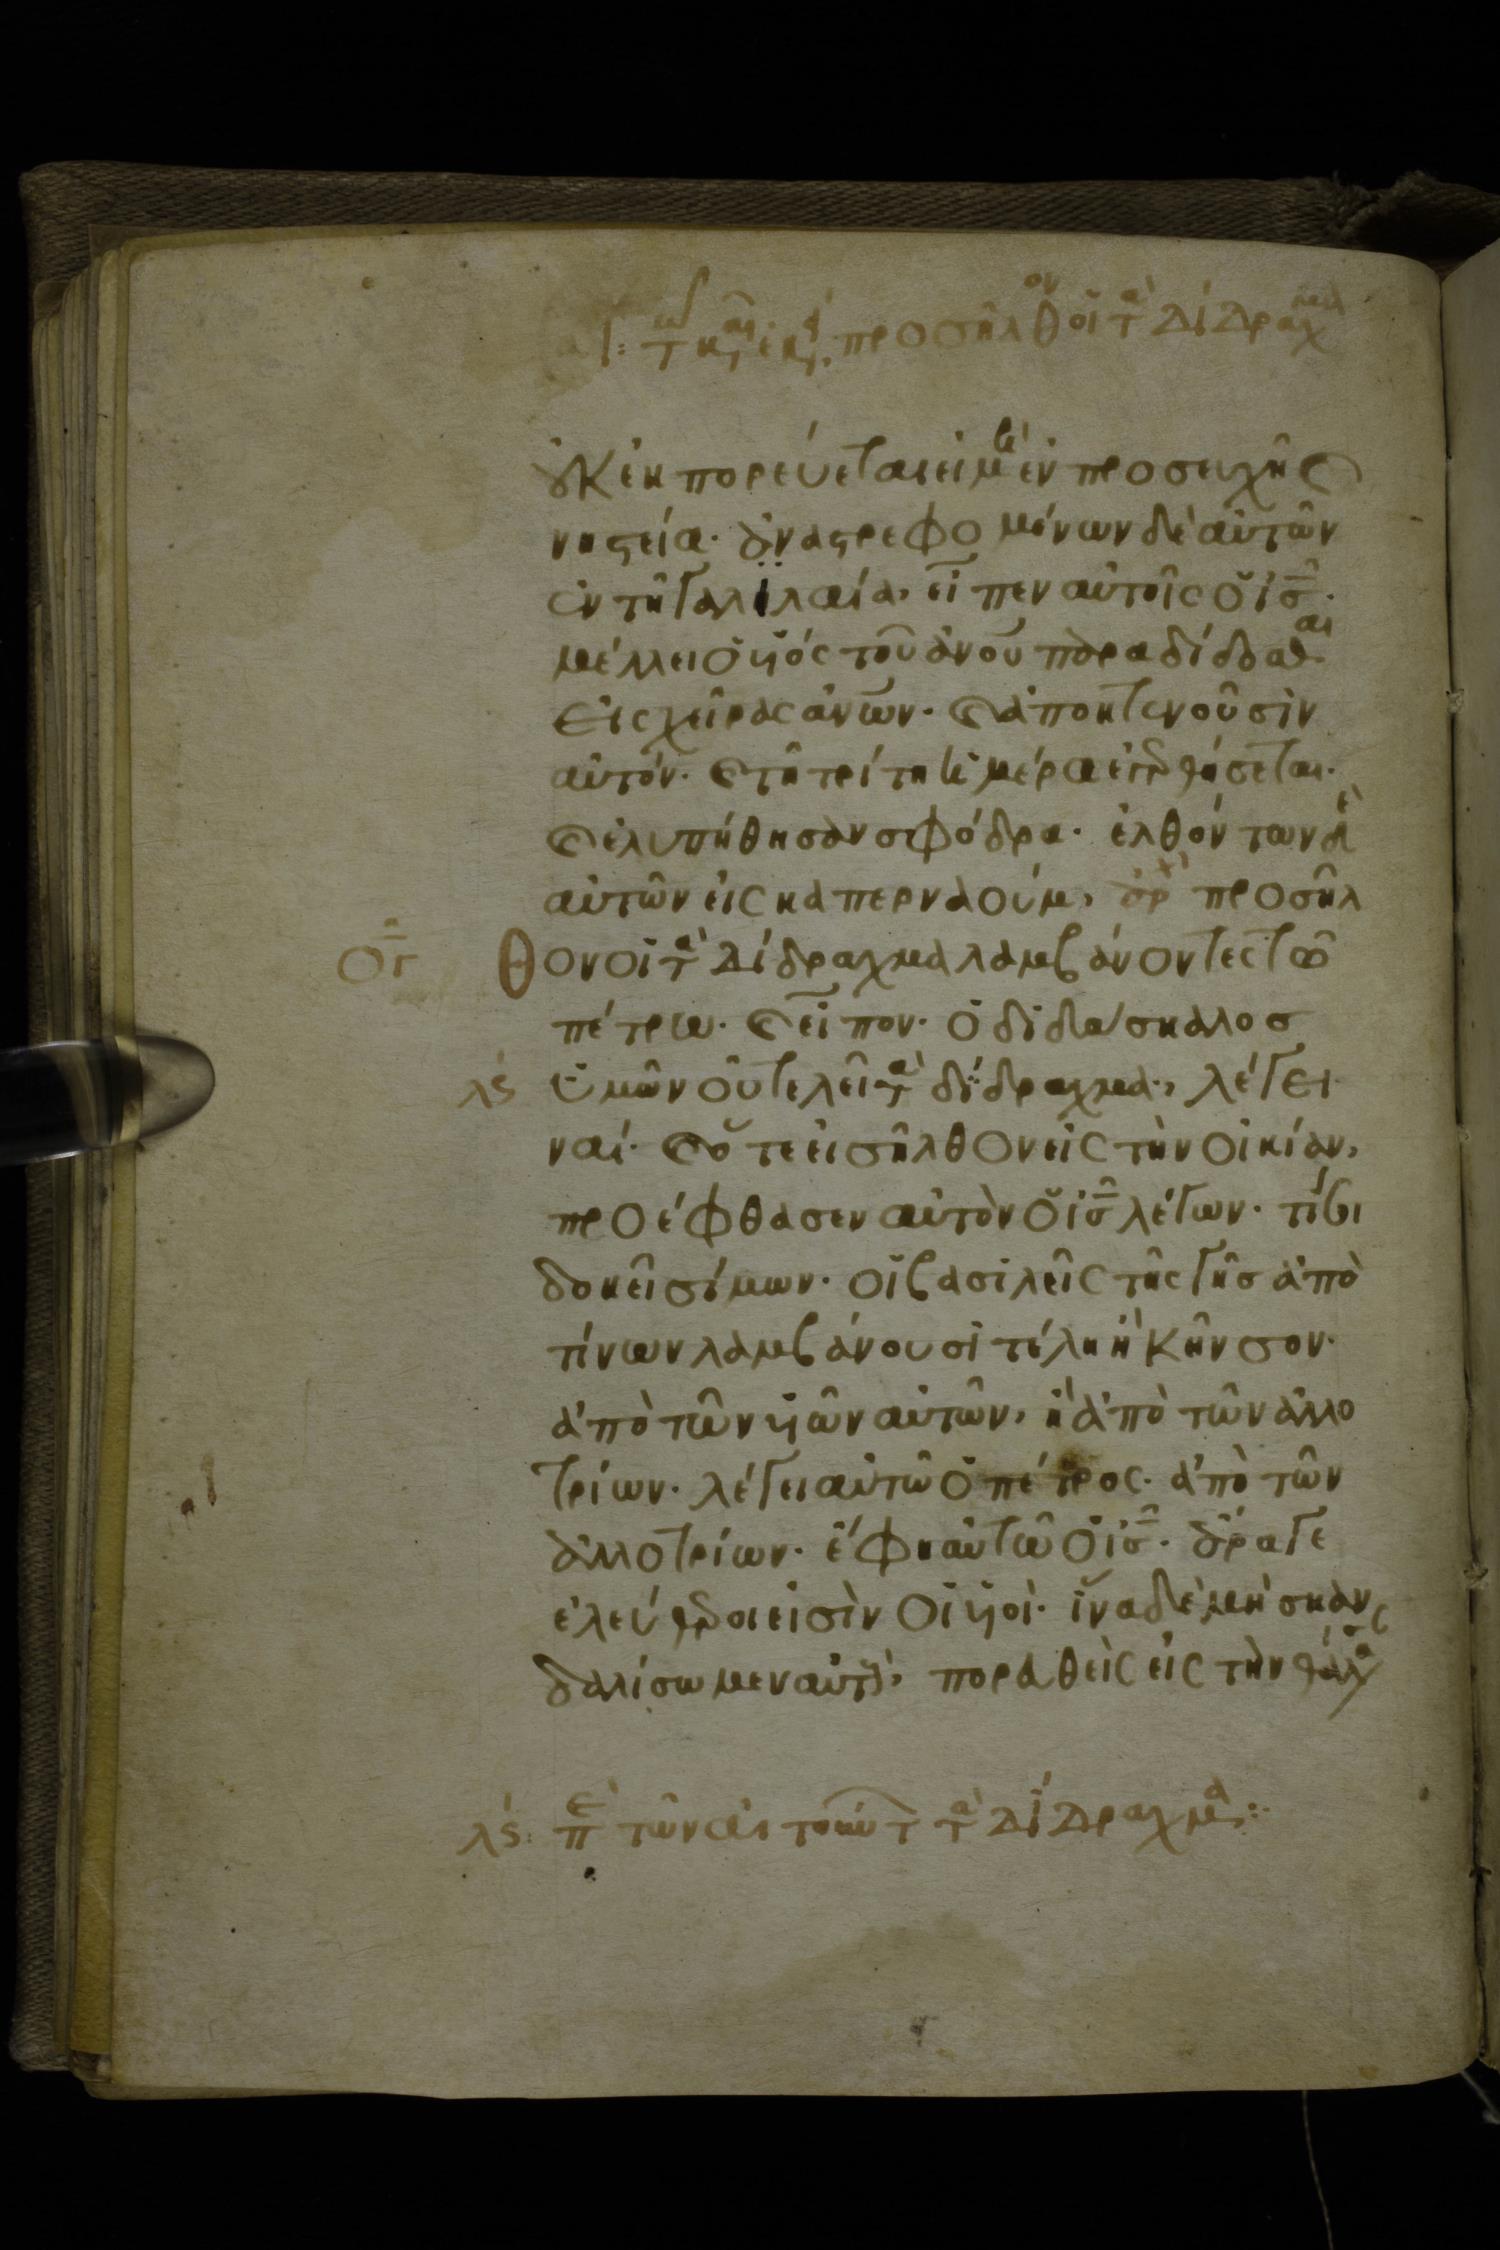 τῷ καιρῷ ἐκείνῳ προσῆλθον οἱ τὰ δίδραχμα
οὐκ ἐκπορεύεται εἰ μὴ ἐν προσευχῆ καὶ
νηστεία· ἀναστρεφομένων δὲ αὐτῶν
ἐν τῆ γαλιλαία, εἶπεν αὐτοῖς ὁ ις·
μέλλει ὁ υἱός τοῦ ανου παραδίδοσθαι
εἰς χεῖρας ανων· καὶ ἀποκτενοῦσιν
αὐτόν· καὶ τῆ τρίτη ἡμέρα ἐγερθήσεται·
καὶ ἐλυπήθησαν σφόδρα· ἐλθόντων δὲ
αὐτῶν εἰς καπερναούμ, ἀρχ προσῆλ
ογ θον οἱ τὰ δίδραχμα λαμβάνοντες τῶ
πέτρω· καὶ εἶπον· ὁ διδάσκαλοσ
λς ὑμῶν οὐ τελεῖ τὰ δίδραχμα, λέγει
ναί· καὶ ὅτε εἰσῆλθον εἰς τὴν οἰκίαν,
προέφθασεν αὐτὸν ὁ ις λέγων· τί σοι
δοκεῖ σίμων· οἱ βασιλεῖς τῆς γῆσ ἀπὸ
τίνων λαμβάνουσι τέλη ἢ κῆνσον·
ἀπὸ τῶν υἱῶν αὐτῶν, ἢ ἀπὸ τῶν ἀλλο
τρίων· λέγει αὐτῶ ὁ πέτρος· ἀπὸ τῶν
ἀλλοτρίων· ἔφη αὐτῶ ὁ ις· ἄραγε
ἐλεύθεροι εἰσὶν οἱ υἱοὶ· ἵνα δὲ μὴ σκαν
δαλίσωμεν αὐτοὺς, πορευθεὶς εἰς τὴν θάλασσαν
λς: περὶ τῶν αἰτούντων τὰ δίδραχμα: